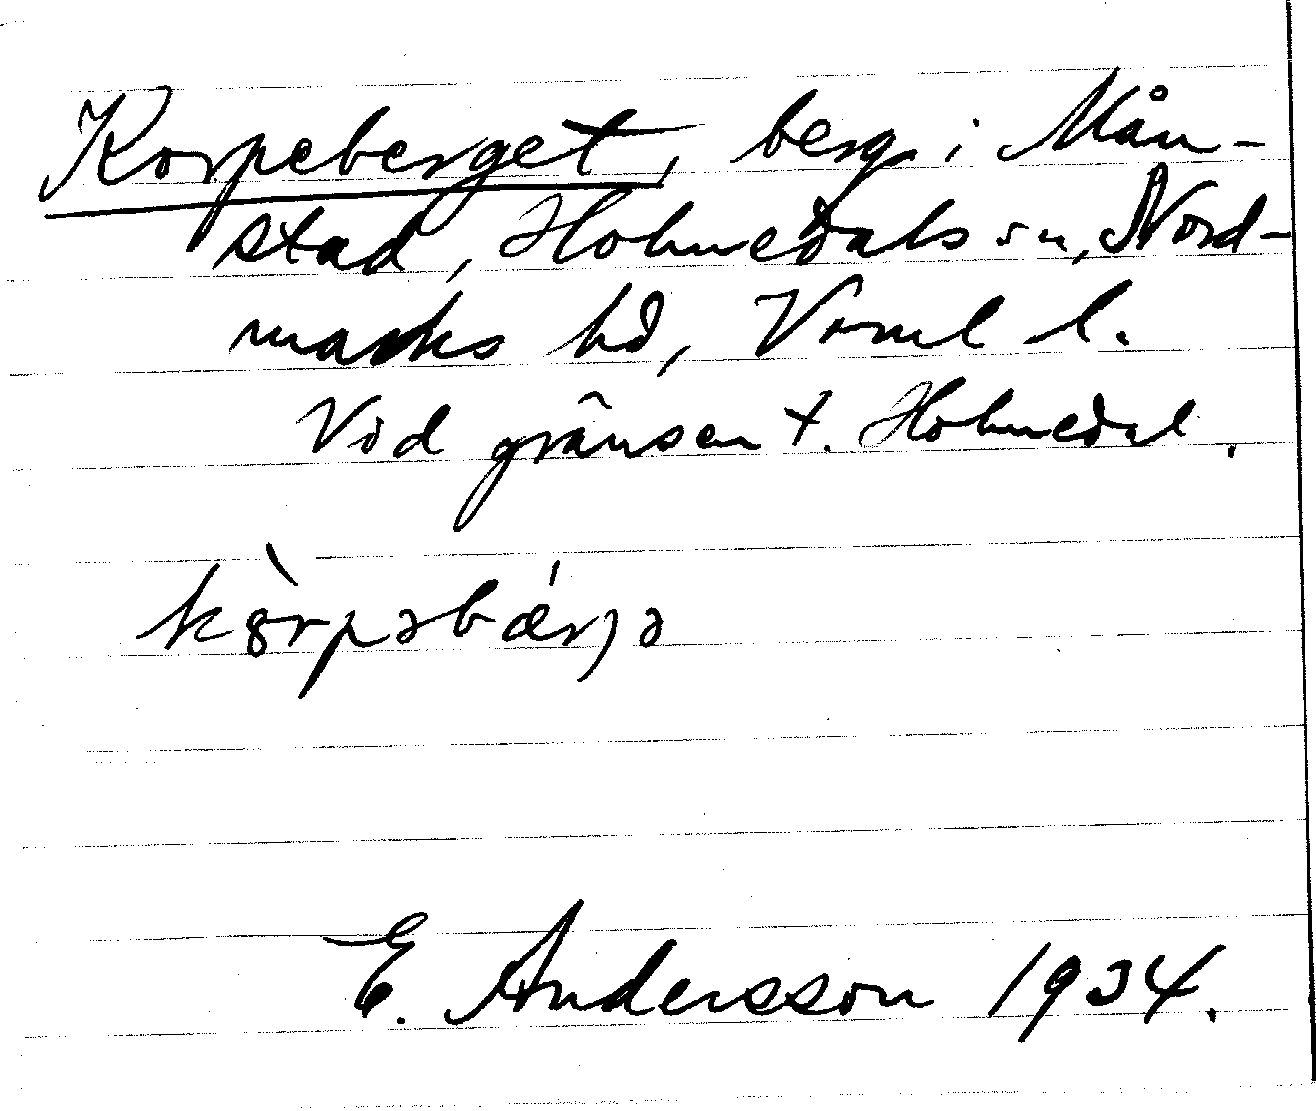 Korpeberget, berg i Mån-
stad, Holmedals sn, Nord-
marks hd, Värml l.
Vid gränsen t. Holmedal.
kȣ̀rpəbǽrjə
E. Andersson 1934.